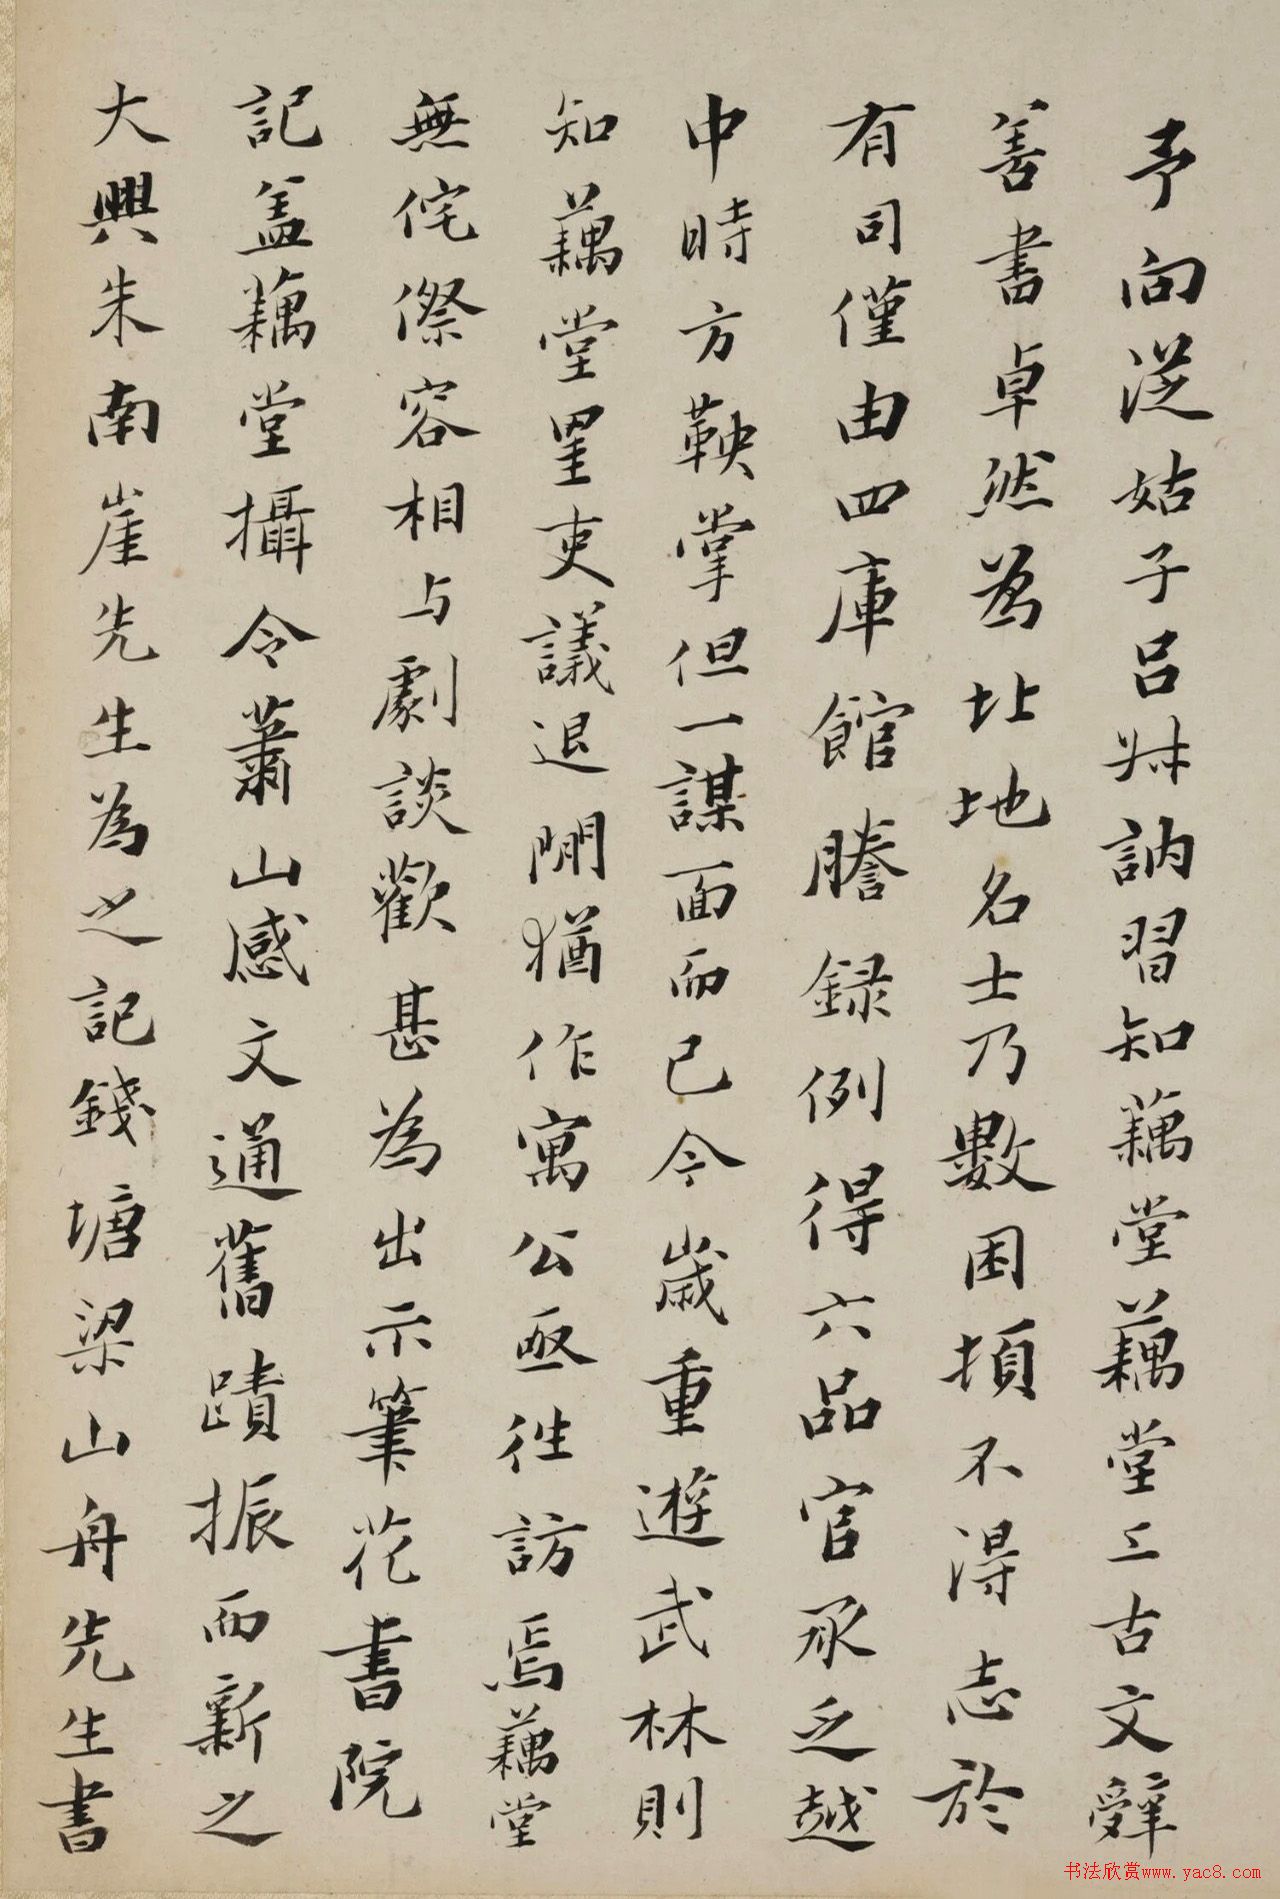 予向從姑子呂叔訥習知藕堂藕堂工古文辭
善書卓然為北地名士乃數困頓不得志於
有司僅由四庫館謄録例得六品官承乏越
中時方鞅掌但一謀面而已今歲重遊武林則
知藕堂罣吏議退閒猶作寓公亟往訪焉藕堂
無侘傺容相与劇談歡甚為出示筆花書院
記盖藕堂攝令蕭山感文通舊蹟振而新之
大興朱南崖先生為之記錢塘梁山舟先生書
书法欣赏www.yac8.com